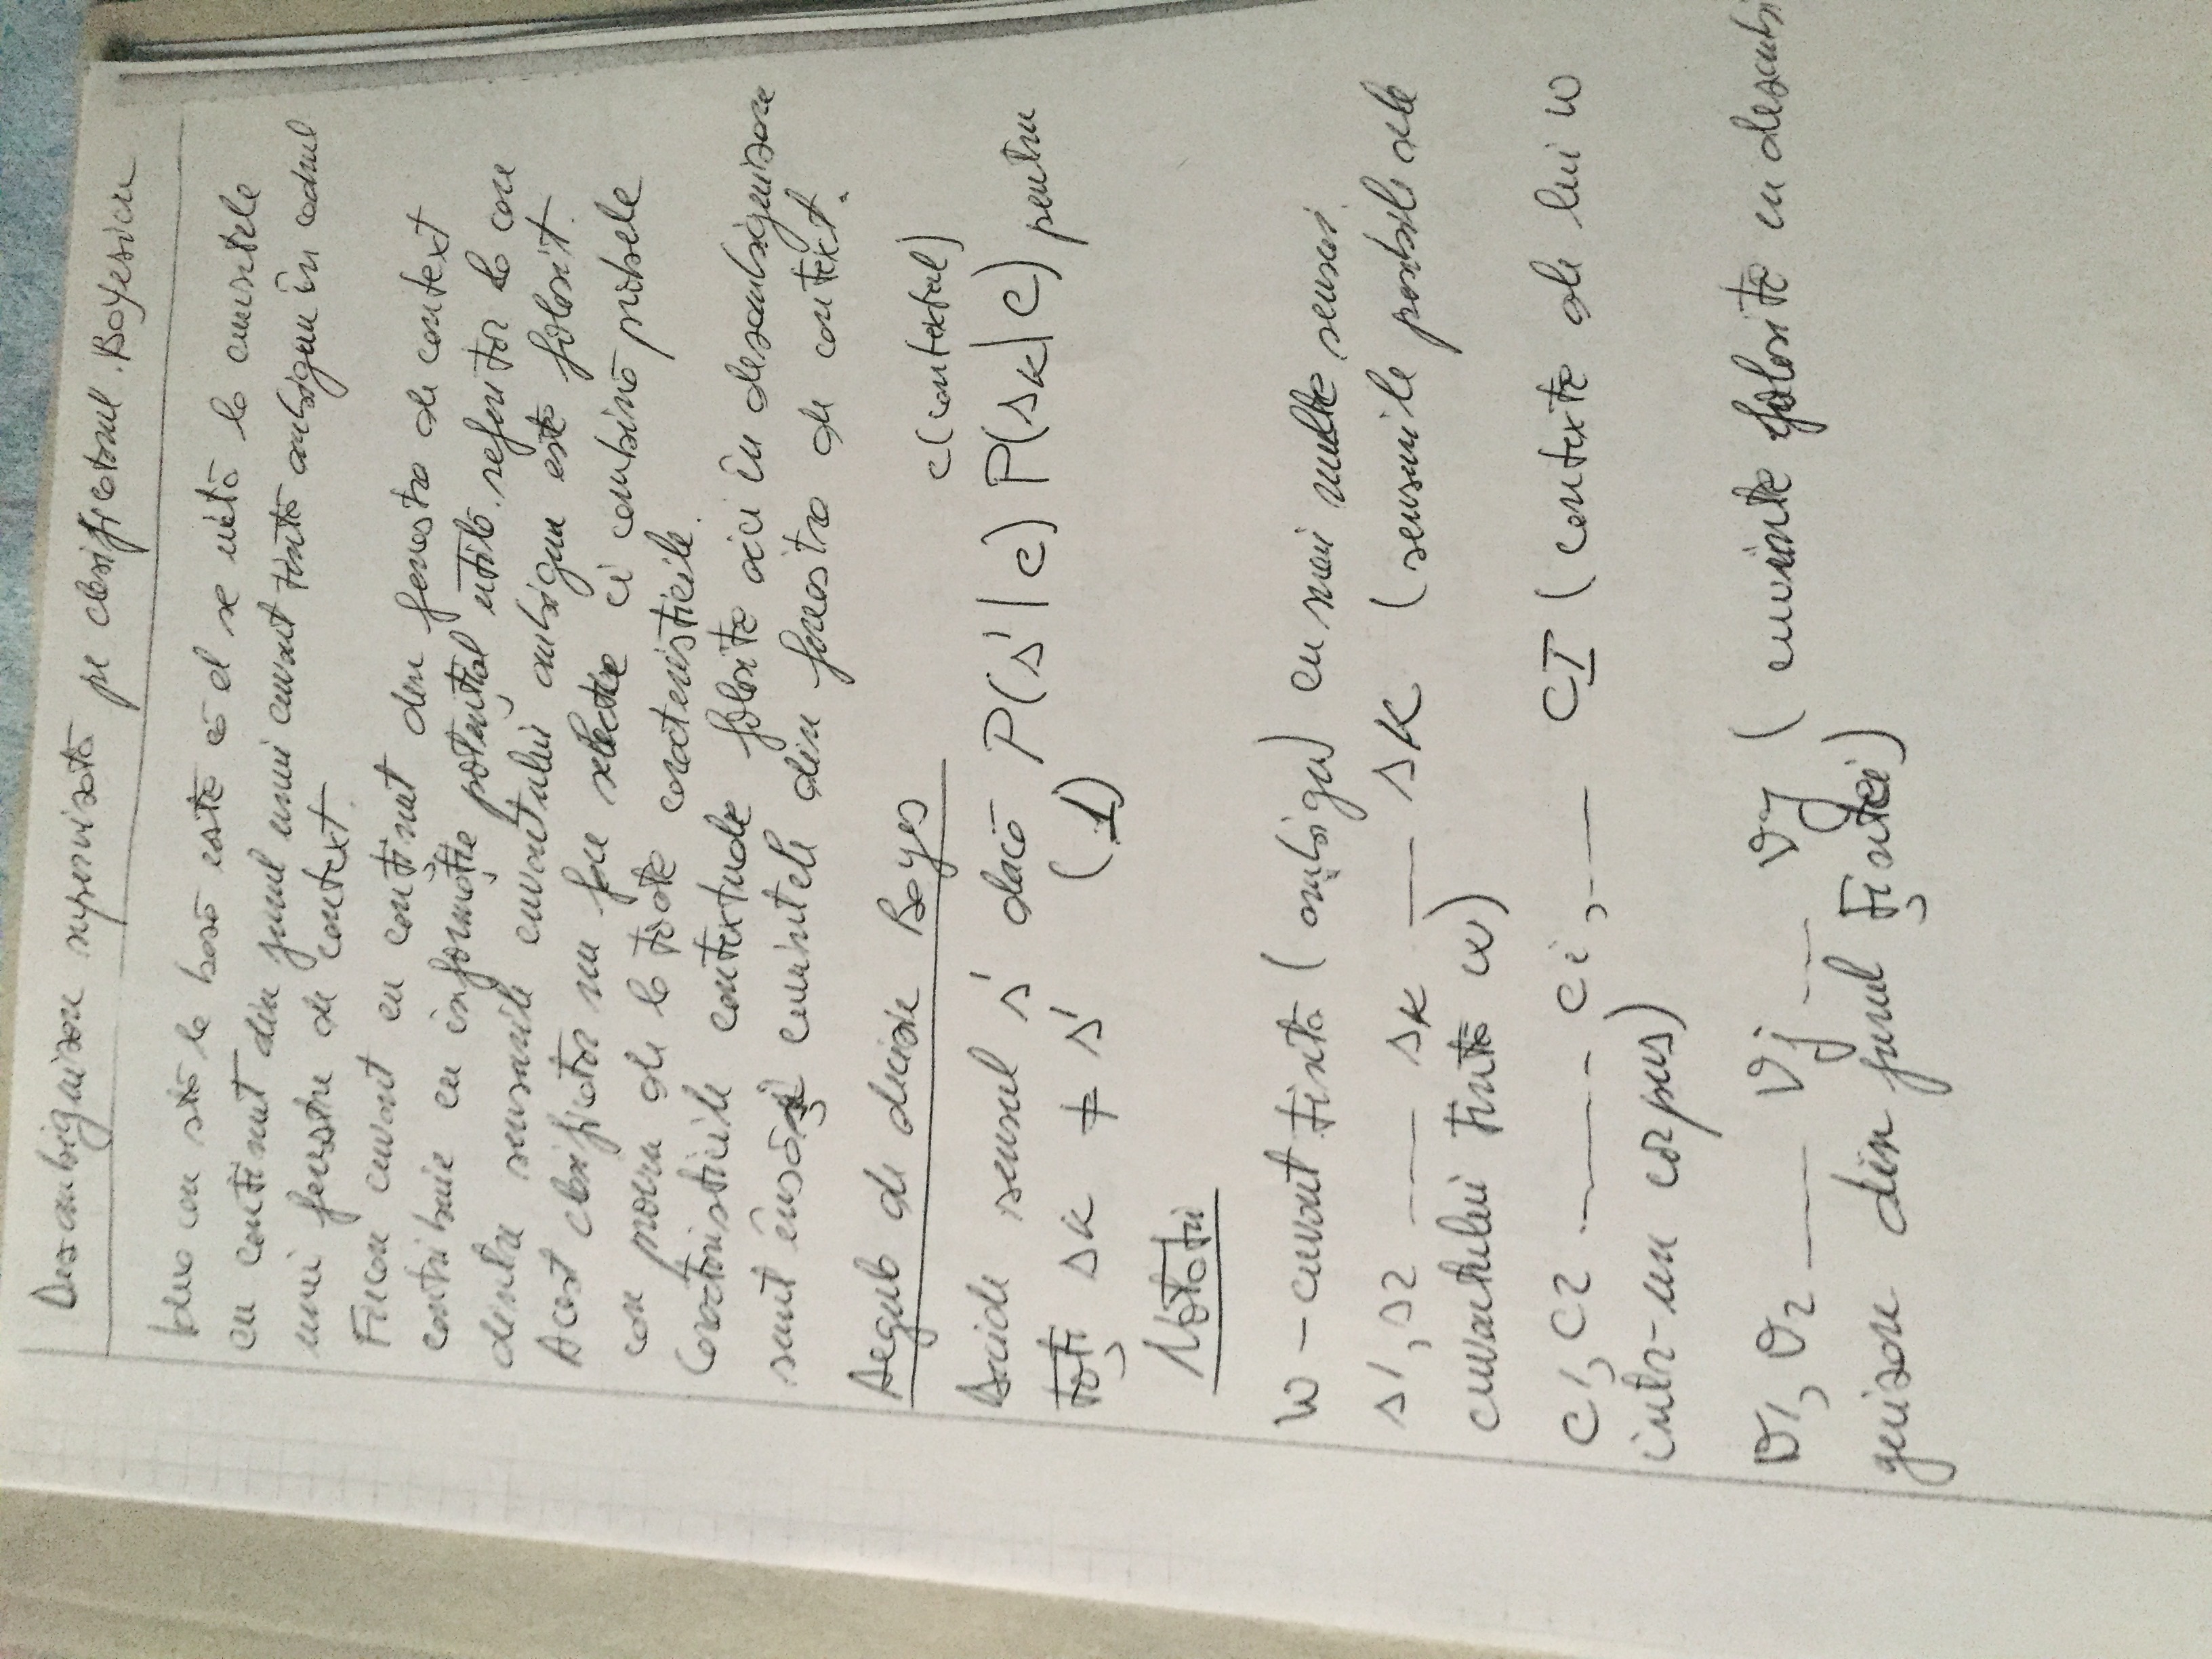 Dezambiguizare supervizată pe clasificatorul Bayesian
Ideea care stă la bază este că el se uită la cuvintele
cu conținut din jurul unui cuvânt țintă ambiguu în cadrul
unei ferestre de context.
Fiecare cuvânt cu conținut din fereastra de context
contribuie cu informație potențial utilă referitor la care
dintre sensurile cuvântului ambiguu este folosit.
Acest clasificator nu face selecție ci combină probele
care provin de la toate caracteristicile.
Caracteristicile contextuale folosite aici în dezambiguizare
sunt însăși cuvintele din fereastra de context.
Regula de decizie Bayes
c(contextul)
Decide sensul s' dacă P(s'|c) P(sk|c) pentru
toți sk ≠ s' (1)
Notații
W – cuvânt țintă (ambigu) cu mai multe sensuri.
s1, s2 ___ sk ___ sK (sensurile posibile ale
cuvântului țintă w)
c1, c2 ____ ci, ___ cI (contexte ale lui w
într-un corpus)
v1, v2 ___ vj ___ vJ (cuvinte folosite în dezambi
guizare din jurul țintei)